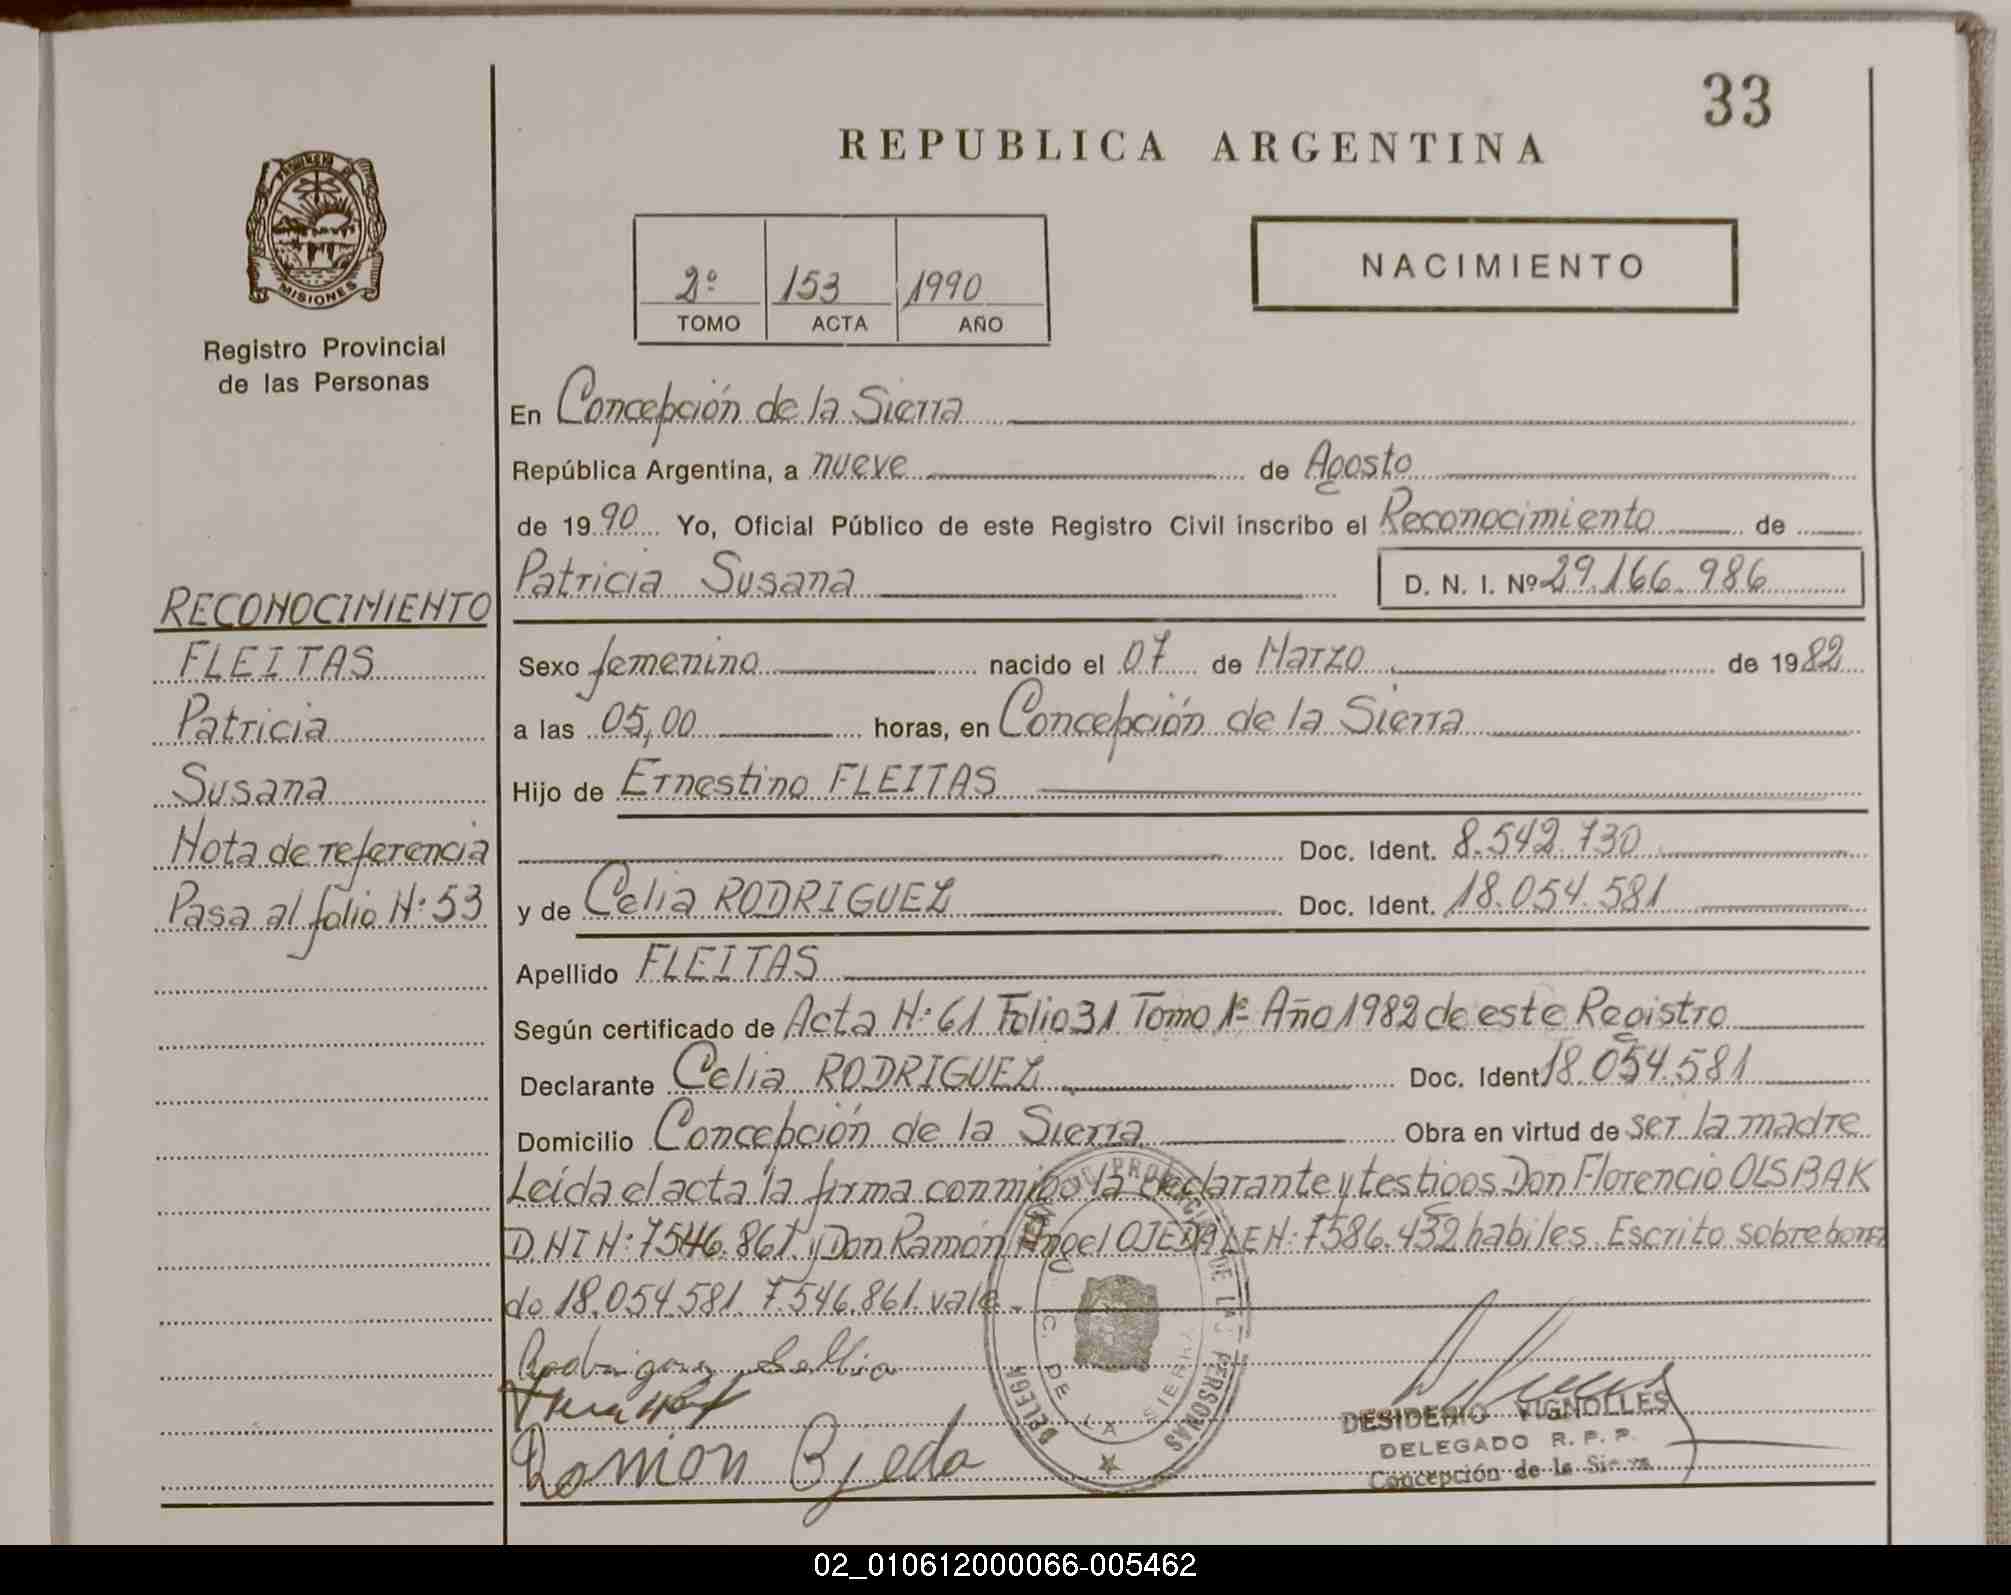 33
REPUBLICA ARGENTINA
MISIONES
Registro Provincial
de las Personas
2º 153 1990
TOMO ACTA AÑO
NACIMIENTO
En Concepción de la Sierra
República Argentina, a nueve de Agosto
de 1990 Yo, Oficial Público de este Registro Civil inscribo el Reconocimiento de
Patricia Susana D. N. I. Nº 29.166.986
RECONOCIMIENTO
FLEITAS
Patricia
Susana
Nota de referencia
Pasa al folio N: 53
Sexo femenino nacido el 07 de Marzo de 1982
a las 05,00 horas, en Concepción de la Sierra
Hijo de Ernestino FLEITAS
Doc. Ident. 8.542.730
y de Celia RODRIGUEZ Doc. Ident. 18.054.581
Apellido FLEITAS
Según certificado de Acta N: 61 Folio 31 Tomo 1º Año 1982 de este Registro
Declarante Celia RODRIGUEZ Doc. Ident. 18.054.581
Domicilio Concepción de la Sierra Obra en virtud de ser la madre
Leída el acta la firma conmigo la declarante y testigos Don Florencio OLSBAK
DNI N: 7546.861 y Don Ramón Angel OJEDA LEN: 7586.432 habiles. Escrito sobre borra
do 18.054.581. 7.546.861. vale
Rodriguez Sellia
Ramon Ojeda
DE LA SIERRA
DE LAS PERSONAS
DESIDERIO VIGNOLLES
DELEGADO R. P. P.
Concepción de la Sierra
02_010612000066-005462